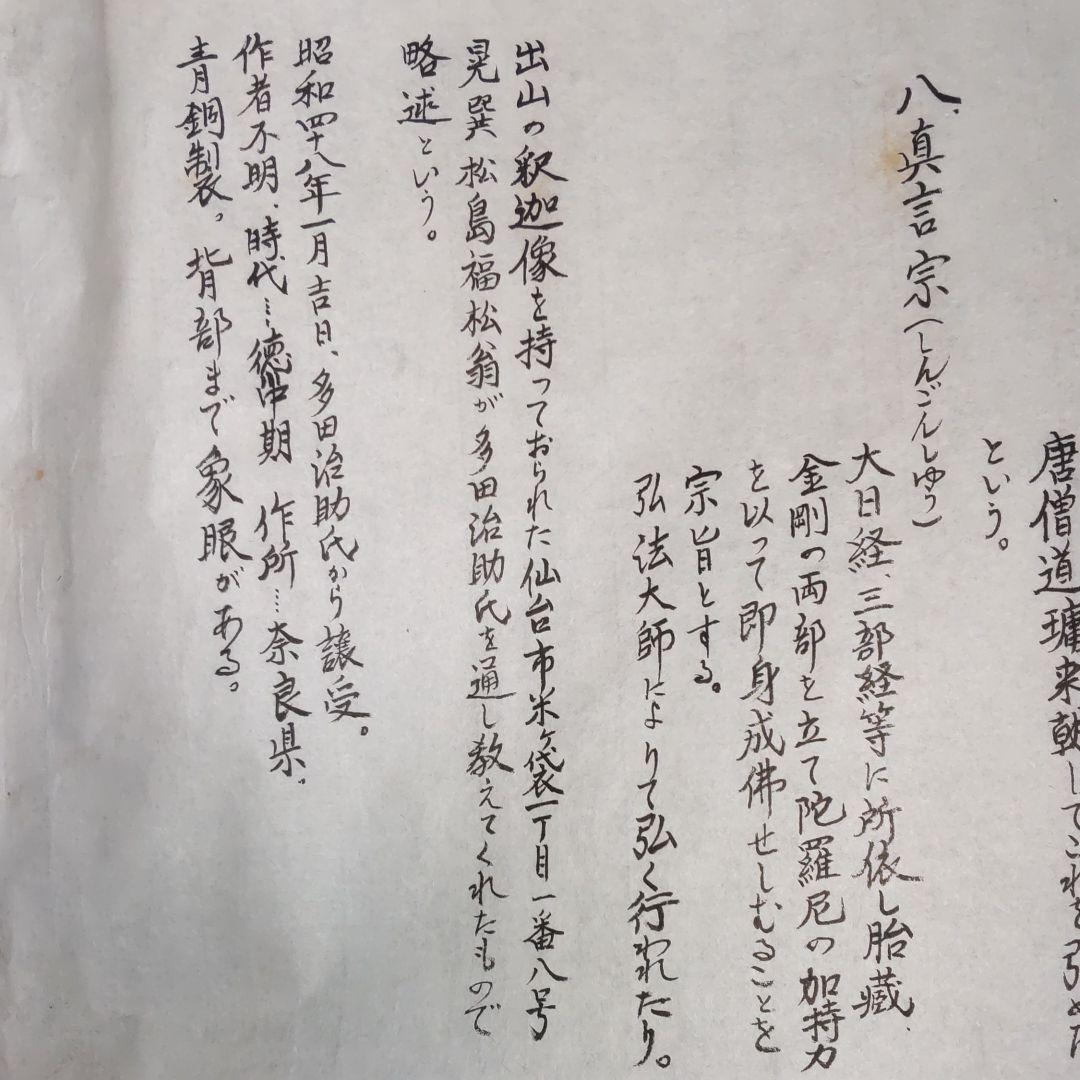 唐僧道璿来朝してこれを弘めた
という。
八、真言宗(しんごんしゅう)
大日経、三部経等に所依し胎蔵、
金剛の両部を立て陀羅尼の加持力
を以って即身成佛せしむることを
宗旨とする。
弘法大師によりて弘く行われたり。
出山の釈迦像を持っておられた仙台市米ヶ袋一丁目一番八号
晃巽松島福松翁が多田治助氏を通し教えてくれたもので
略述という。
昭和四十八年一月吉日、多田治助氏から譲受。
作者不明、時代…徳中期 作所…奈良県。
青銅製。背部まで象眼がある。